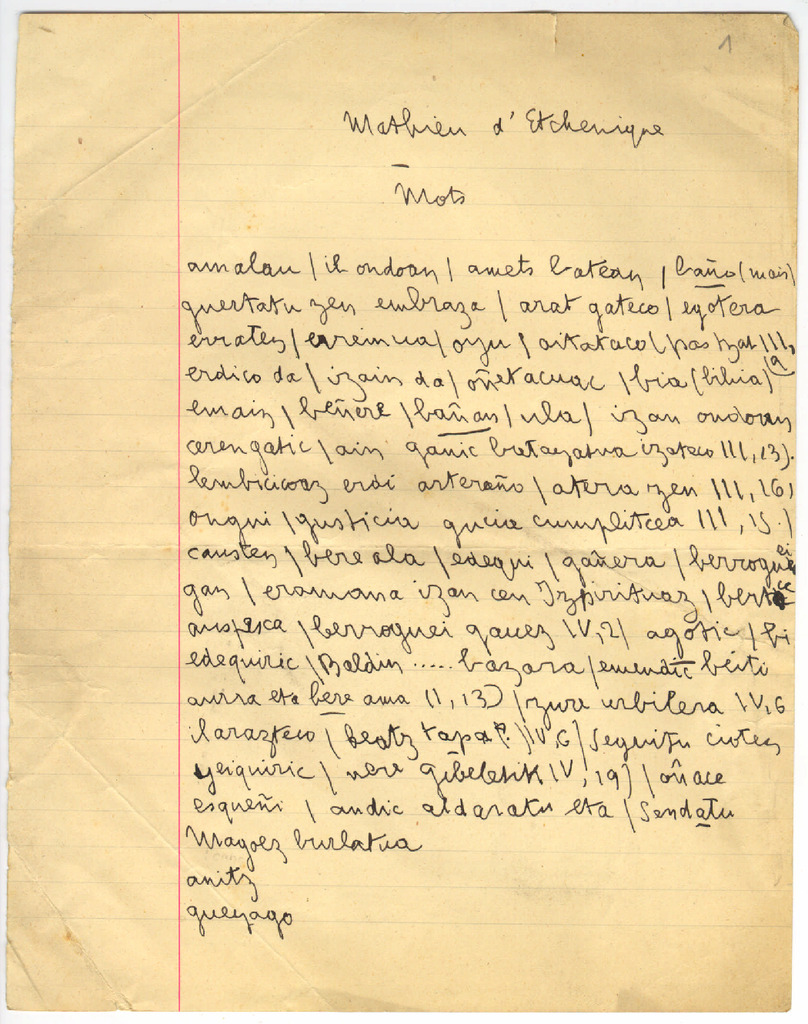 1
Mathieu d'Etchenique
—
Mots
amalau / il ondoan / amets batean / baño (mais)
guertatu zen embraza / arat gateco / egotera
erraten / erremua / oyu / aitataco (pas Izat III,
erdico da / izain da / oñetacuac / bia (bihia) 9)
emain / beñere / bañan / ula / izan ondoan
cerengatic / ain ganic batayatua izateco III, 13).
lembicicoaz erdi arteraño / atera zen III, 16)
ongui / justicia gucia cumplitcea III, 15.)
causten / bere ala / edequi / gañera / berroguei
gau / eramana izan cen Izpirituaz / bertce
berroguei gauez IV, 2) agotic / bi
edequiric / Baldin ..... bazara / emendic beiti
aurra eta bere ama II, 13) / zure urbilera IV, 6
ilarazteco / beatz tapa? IV, 6) Seguitu cioten
yeiquiric / nere gibeletik IV, 19) / oñace
esqueñi / andic aldaratu eta / Sendatu
Magoez burlatua
anitz
gueyago